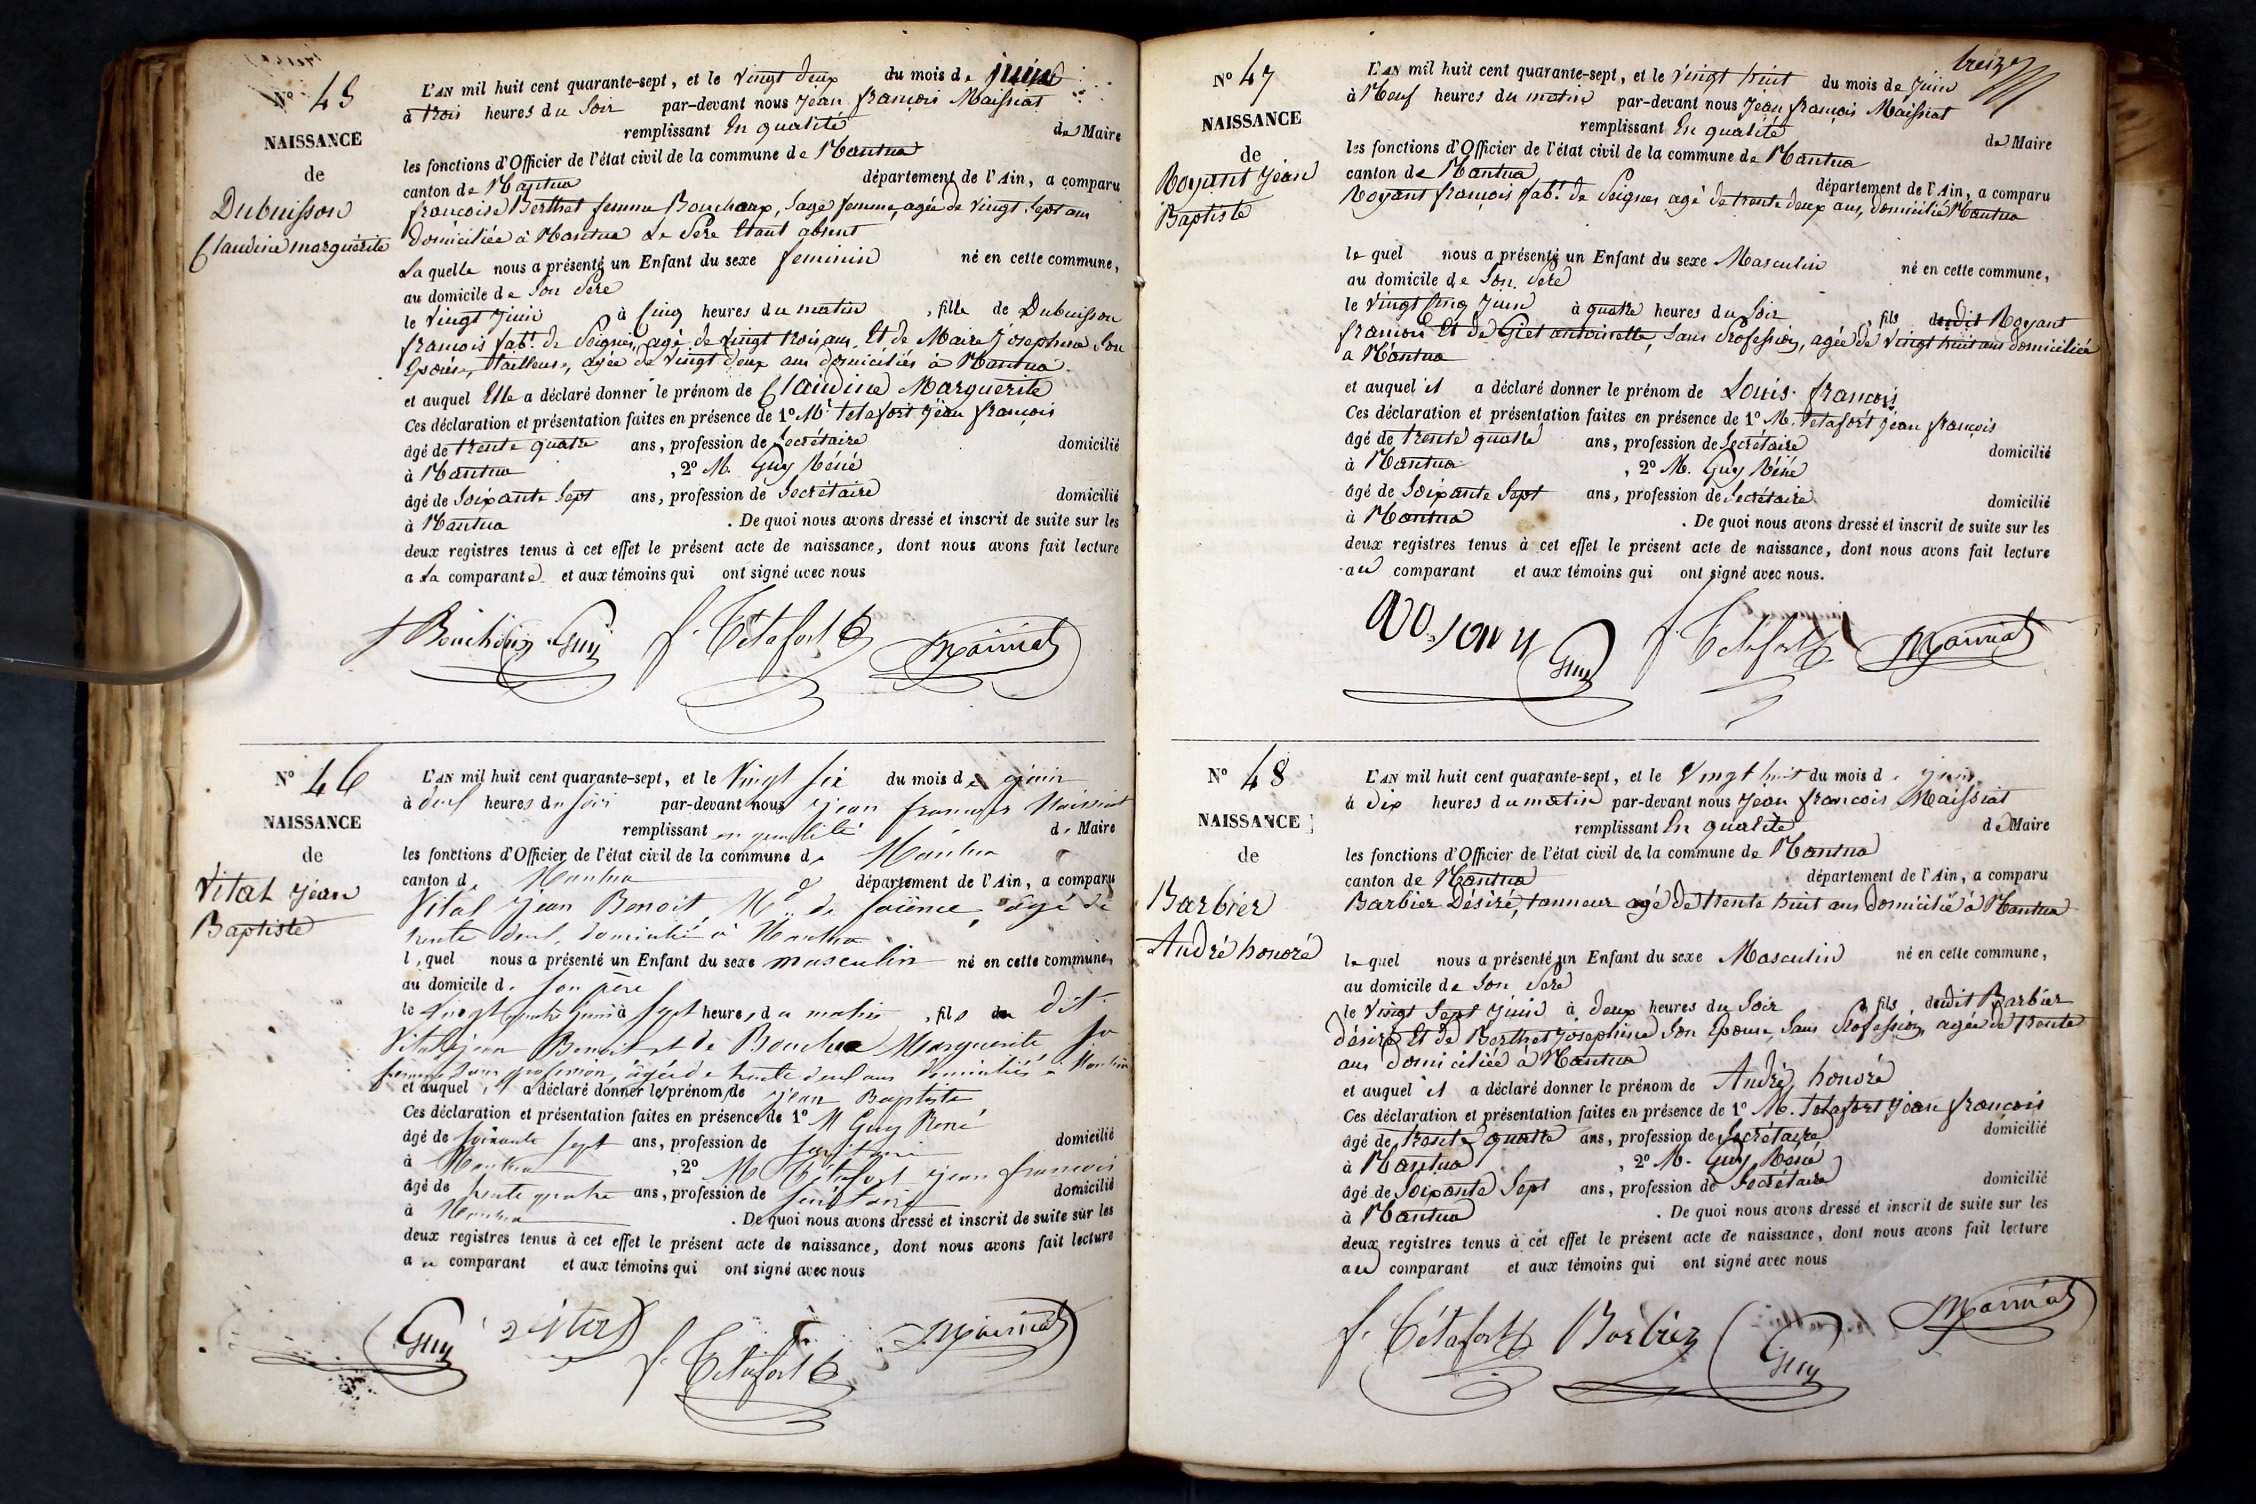 N° 45
NAISSANCE
de
Dubuisson
Claudine marguérite
L'AN mil huit cent quarante-sept, et le vingt deux du mois de juin
à trois heures du Soir par-devant nous jean françois Maissiat
remplissant En qualité de Maire
les fonctions d'Officier de l'état civil de la commune de Nantua
canton de Nantua département de l'Ain, a comparu
françoise Berthet femme Bouchoux, Sage femme, agée de vingt Sept ans
domiciliée à Nantua Le Père étant absent
La quelle nous a présenté un Enfant du sexe feminin né en cette commune,
au domicile de Son Père
le vingt juin à Cinq heures du matin , fille de Dubuisson
françois fab.t de Peignes, agé de vingt trois ans, Et de Maire josephine Son
Epouse, tailleuse, agée de vingt deux ans domiciliés à Nantua.
et auquel Elle a déclaré donner le prénom de Claudine Marguerite
Ces déclaration et présentation faites en présence de 1° Mr. tetafort jean françois
âgé de trente quatre ans, profession de Secrétaire domicilié
à Nantua , 2° M. Guy Réné
âgé de Soixante Sept ans, profession de Secrétaire domicilié
à Nantua . De quoi nous avons dressé et inscrit de suite sur les
deux registres tenus à cet effet le présent acte de naissance, dont nous avons fait lecture
a La comparante et aux témoins qui ont signé avec nous
f Bouchoux Guy f. Tétafort Maissiat
N° 46
NAISSANCE
de
Vital jean
Baptiste
L'AN mil huit cent quarante-sept, et le Vingt Six du mois de juin
à deux heures du soir par-devant nous jean françois Maissiat
remplissant en qualité de Maire
les fonctions d'Officier de l'état civil de la commune de Nantua
canton de Nantua département de l'Ain, a comparu
Vital jean Benoit, Md. de faïence, âgé de
trente deux, domicilié à Nantua
lequel nous a présenté un Enfant du sexe masculin né en cette commune,
au domicile de son père
le vingt quatre juin à Sept heures du matin , fils du dit
Vital jean Benoit et de Bouchu Marguerite sa
femme sans profession, âgée de trente deux ans domiciliés à Nantua
et auquel il a déclaré donner le prénom de jean Baptiste
Ces déclaration et présentation faites en présence de 1° M Guy René
âgé de soixante sept ans, profession de secrétaire domicilié
à Nantua , 2° M Tétafort jean françois
âgé de trente quatre ans, profession de secrétaire domicilié
à Nantua . De quoi nous avons dressé et inscrit de suite sur les
deux registres tenus à cet effet le présent acte de naissance, dont nous avons fait lecture
au comparant et aux témoins qui ont signé avec nous
Guy f. Tétafort Maissiat
treize
N° 47
NAISSANCE
de
Noyant jean
Baptiste
L'AN mil huit cent quarante-sept, et le vingt huit du mois de juin
à Neuf heures du matin par-devant nous jean françois Maissiat
remplissant En qualité de Maire
les fonctions d'Officier de l'état civil de la commune de Nantua
canton de Nantua département de l'Ain, a comparu
Noyant françois fab.t de Peignes agé de trente deux ans, domicilié Nantua
le quel nous a présenté un Enfant du sexe Masculin né en cette commune,
au domicile de Son Père
le vingt Cinq juin à quatre heures du Soir , fils du dit Noyant
françois Et de Giet antoinette, Sans Profession, agée de vingt huit ans domiciliée
a Nantua
et auquel il a déclaré donner le prénom de Louis françois
Ces déclaration et présentation faites en présence de 1° M. tetafort jean françois
âgé de trente quatre ans, profession de Secrétaire domicilié
à Nantua , 2° M. Guy Réné
âgé de Soixante Sept ans, profession de Secrétaire domicilié
à Nantua . De quoi nous avons dressé et inscrit de suite sur les
deux registres tenus à cet effet le présent acte de naissance, dont nous avons fait lecture
au comparant et aux témoins qui ont signé avec nous.
Guy f. Tétafort Maissiat
N° 48
NAISSANCE
de
Barbier
André honoré
L'AN mil huit cent quarante-sept, et le Vingt huit du mois de juin
à dix heures du matin par-devant nous jean françois Maissiat
remplissant En qualité de Maire
les fonctions d'Officier de l'état civil de la commune de Nantua
canton de Nantua département de l'Ain, a comparu
Barbier Désiré, tanneur agé de trente huit ans domicilié à Nantua
le quel nous a présenté un Enfant du sexe Masculin né en cette commune,
au domicile de Son Père
le vingt Sept juin à deux heures du Soir , fils dudit Barbier
désiré Et de Berthet josephine Son Epouse, Sans Profession, agée de trente
ans domiciliée à Nantua
et auquel il a déclaré donner le prénom de André honoré
Ces déclaration et présentation faites en présence de 1° M. tetafort jean françois
âgé de trente quatre ans, profession de Secrétaire domicilié
à Nantua , 2° M. Guy Réné
âgé de Soixante Sept ans, profession de Secrétaire domicilié
à Nantua . De quoi nous avons dressé et inscrit de suite sur les
deux registres tenus à cet effet le présent acte de naissance, dont nous avons fait lecture
au comparant et aux témoins qui ont signé avec nous
f. Tétafort Barbier Guy Maissiat